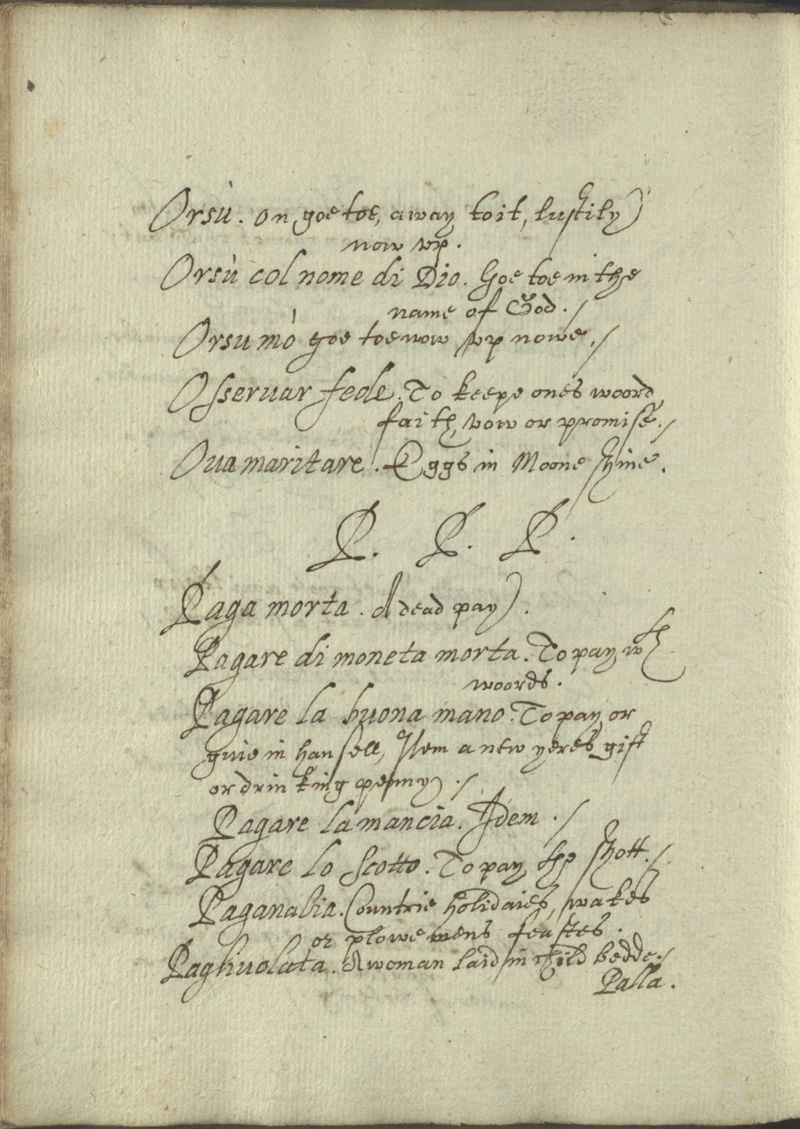 Orsù. on goe toe, away to it, lustily
now vp.
Orsù col nome di Dio. Goe toe in the
name of God./
Orsu mò goe toe now vp nowe./
Osseruar fede. To keepe ones woord,
faith, vow or promise./
Oua maritare. Eggs in Moone shine.
P. P. P.
Paga morta. A dead pay.
Pagare di moneta morta. To pay wth
woords.
Pagare la buona mano. To pay or
giue in hansell, Item a new yeres gift
or drinking penny./
Pagare la mancia. Idem./
Pagare lo scotto. To pay the shott./
Paganalia. Countrie holidaies, wakes
or plowe mens feastes.
Pagliuolata. A woman laid in child bedde./
Palla.